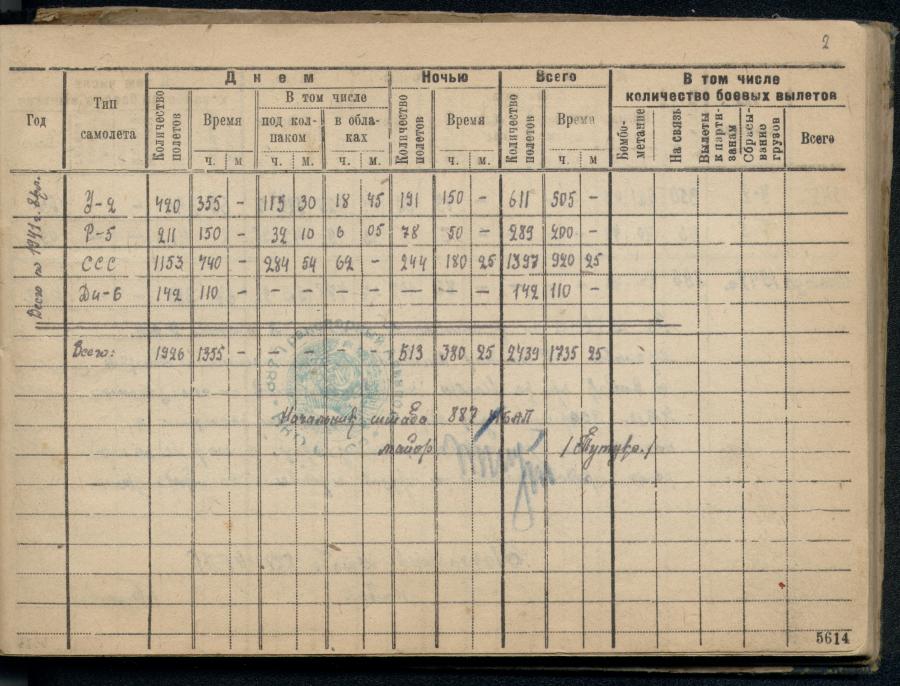 2
Днем Ночью Всего В том числе количество боевых вылетов
Год Тип самолета Количество полетов Время В том числе Количество полетов Время Количество полетов Время Бомбометание На связь Вылеты к партизанам Сбрасывание грузов Всего
под колпаком в облаках
ч. м ч. м. ч. м. ч. м ч. м
Всего по 1941 г.
У-2 420 355 — 115 30 18 45 191 150 — 611 505 —
Р-5 211 150 — 32 10 6 05 78 50 — 289 200 —
ССС 1153 740 — 284 54 62 — 244 180 25 1397 920 25
Ди-6 142 110 — — — — — — — — 142 110 —
Всего: 1926 1355 — — — — — 513 380 25 2439 1735 25
Начальник штаба 887 НБАП
майор
5614